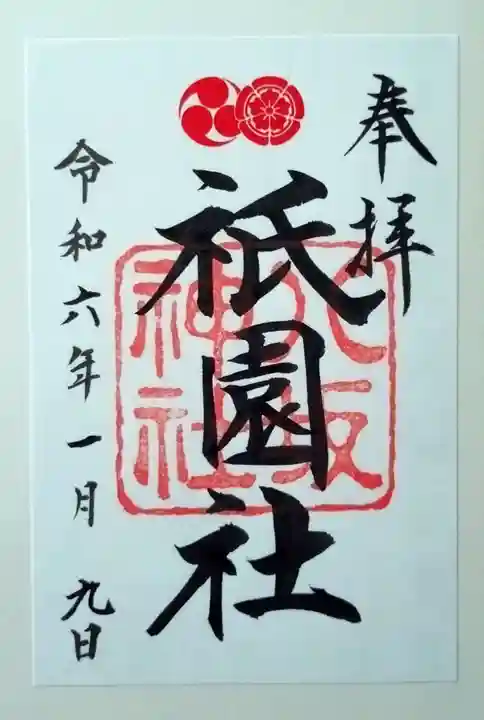 奉拝
祇園社
八坂
神社
令和六年一月九日